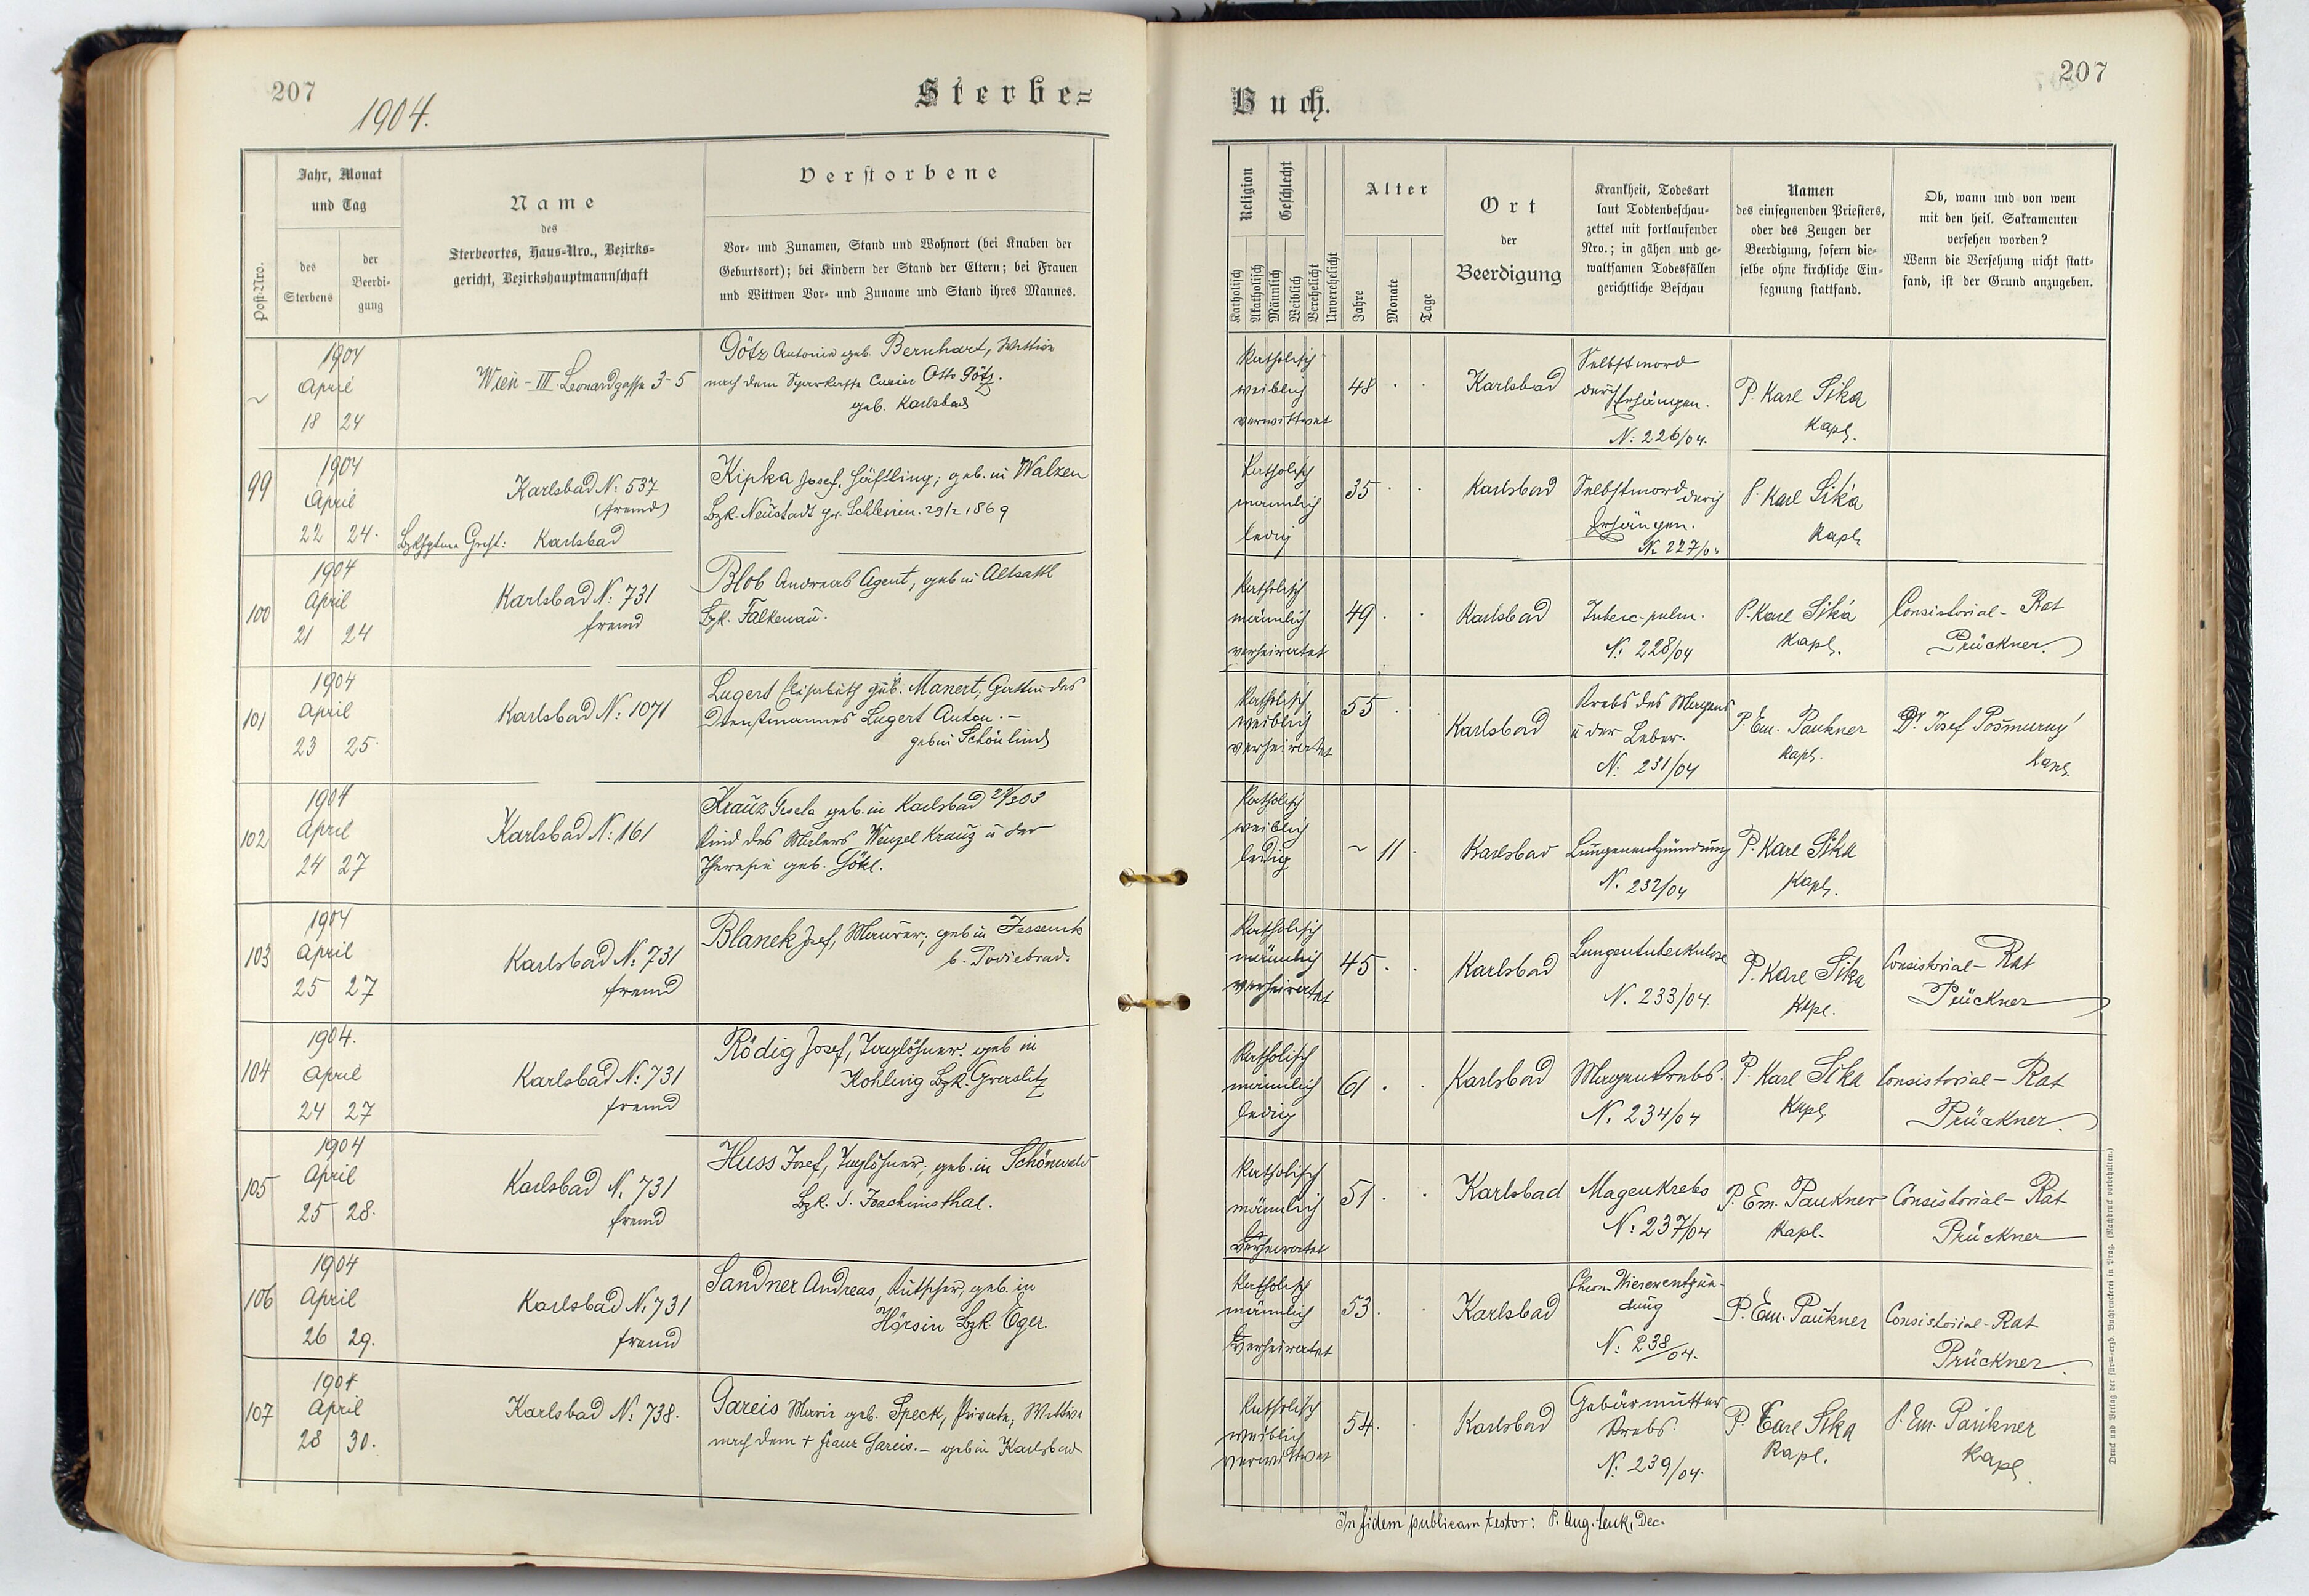 207
1904.
Sterbe=
Jahr, Monat
und Tag
Post-Nro.
des
Sterbens
der
Beerdi-
gung
Name
des
Sterbeortes, Haus-Nro., Bezirks-
gericht, Bezirkshauptmannschaft
Verstorbene
Vor- und Zunamen, Stand und Wohnort (bei Knaben der
Geburtsort); bei Kindern der Stand der Eltern; bei Frauen
und Wittwen Vor- und Zuname und Stand ihres Mannes.
1904
April
18 24
Wien - III. Leonardgasse 3-5
Götz Antonie geb. Bernhart, Wittwe
nach dem Sparkasse Otto Götz.
geb. Karlsbad
99
1904
April
22 24.
Karlsbad N: 537
(fremd)
Karlsbad
Kipka Josef, Häftling; geb. in Walzen
Bzk. Neustadt pr. Schlesien. 29/2 1869
100
1904
April
21 24
Karlsbad N: 731
fremd
Blob Andreas Agent, geb in Altsattl
Bzk. Falkenau.
101
1904
April
23 25.
Karlsbad N: 1071
Lugert Elisabeth geb. Manert, Gattin des
Dienstmannes Lugert Anton. —
geb in Schönlind
102
1904
April
24 27
Karlsbad N: 161
Krauz Gisela geb. in Karlsbad
Kind des Malers Wenzel Krauz u der
Theresie geb. Götzl.
103
1904
April
25 27
Karlsbad N: 731
fremd
Blanek Josef, Maurer; geb in
b. Podiebrad.
104
1904.
April
24 27
Karlsbad N: 731
fremd
Rödig Josef, Taglöhner. geb in
Kohling Bzk. Graslitz
105
1904
April
25 28.
Karlsbad N. 731
fremd
Huss Josef, Taglöhner; geb. in Schönwald
Bzk. S. Joachimsthal.
106
1904
April
26 29.
Karlsbad N. 731
fremd
Sandner Andreas, Kutscher, geb. in
Hörsin Bzk. Eger.
107
1904
April
28 30.
Karlsbad N: 738.
Gareis Marie geb. Speck, Private, Wittwe
nach dem + Franz Gareis. — geb in Karlsbad
Buch.
207
Religion
Geschlecht
Katholisch
Akatholisch
Männlich
Weiblich
Verehelicht
Unverehelicht
Alter
Jahre
Monate
Tage
Ort
der
Beerdigung
Krankheit, Todesart
laut Todtenbeschau-
zettel mit fortlaufender
Nro.; in gähen und ge-
waltsamen Todesfällen
gerichtliche Beschau
Namen
des einsegnenden Priesters,
oder des Zeugen der
Beerdigung, sofern die-
selbe ohne kirchliche Ein-
segnung stattfand.
Ob, wann und von wem
mit den heil. Sakramenten
versehen worden?
Wenn die Versehung nicht statt-
fand, ist der Grund anzugeben.
Katholisch
weiblich
verwittwet
48
Karlsbad
Selbstmord
durch Erhängen.
N: 226/04.
P. Karl Sika
Kapl.
Katholisch
männlich
ledig
35
Karlsbad
Selbstmord durch
Erhängen.
N. 227/04
P. Karl Sika
Kapl.
Katholisch
männlich
verheiratet
49
Karlsbad
Tuberc. pulm.
N. 228/04
P. Karl Sika
Kapl.
Consistorial-Rat
Prückner.
Katholisch
weiblich
verheiratet
55
Karlsbad
Krebs des Magens
u der Leber.
N: 231/04
P. Em. Paukner
Kapl.
Dr. Josef Pošmurný
Kapl.
Katholisch
weiblich
ledig
~ 11
Karlsbad
Lungenentzündung
N. 232/04
P. Karl Sika
Kapl.
Katholisch
männlich
verheiratet
45
Karlsbad
Lungentuberkulose
N. 233/04.
P. Karl Sika
Kapl.
Consistorial-Rat
Prückner
Katholisch
männlich
ledig
61
Karlsbad
Magenkrebs.
N. 234/04
P. Karl Sika
Kapl.
Consistorial-Rat
Prückner.
Katholisch
männlich
verheiratet
51
Karlsbad
Magenkrebs
N: 237/04
P. Em. Paukner
Kapl.
Consistorial-Rat
Prückner
Katholisch
männlich
verheiratet
53
Karlsbad
Chron. Nierenentzün-
dung
N: 238/04.
P. Em. Paukner
Consistorial-Rat
Prückner
Katholisch
weiblich
verwittwet
54
Karlsbad
Gebärmutter
Krebs.
N. 239/04.
P. Carl Sika
Kapl.
P. Em. Paukner
Kapl.
In fidem publicam testor: P. Aug. Dec.
Druck und Verlag der fürst-erzb. Buchdruckerei in Prag. (Nachdruck vorbehalten.)